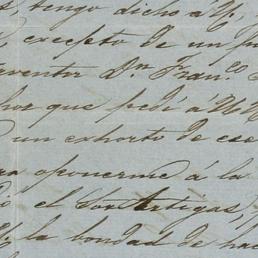 tengo dicho á V,
excepto de un
ventor Dn. Franco
que pedí á V
un exhorto de ese
ra oponerme á la
el Sor Artigas,
la bondad de hac